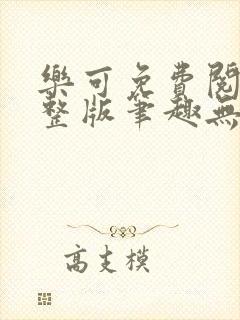 樂可免費閱
整版筆趣無
高支模